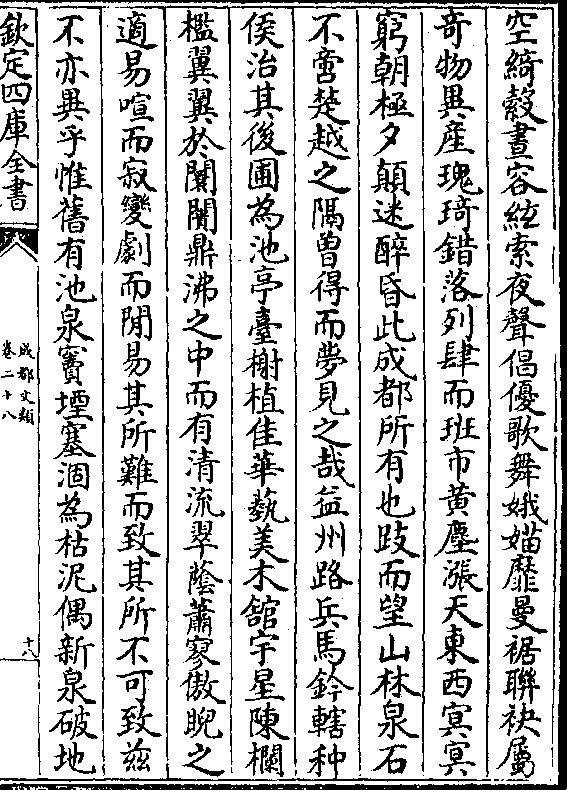 空綺縠晝容絃索夜聲倡優歌舞娥媌靡曼裾聯袂屬
奇物異産瑰琦錯落列肆而班市黄塵漲天東西冥冥
窮朝極夕顛迷醉昏此成都所有也跂而望山林泉石
不啻楚越之隔曽得而夢見之哉益州路兵馬鈐轄种
侯治其後圃為池亭臺榭植佳華蓺美木舘宇星陳欄
檻翼翼於闤闠鼎沸之中而有清流翠蔭蕭寥傲睨之
適易喧而寂變劇而閒易其所難而致其所不可致兹
不亦異乎惟舊有池泉竇堙塞涸為枯泥偶新泉破地
欽定四庫全書
成都文類
卷二十八
十八